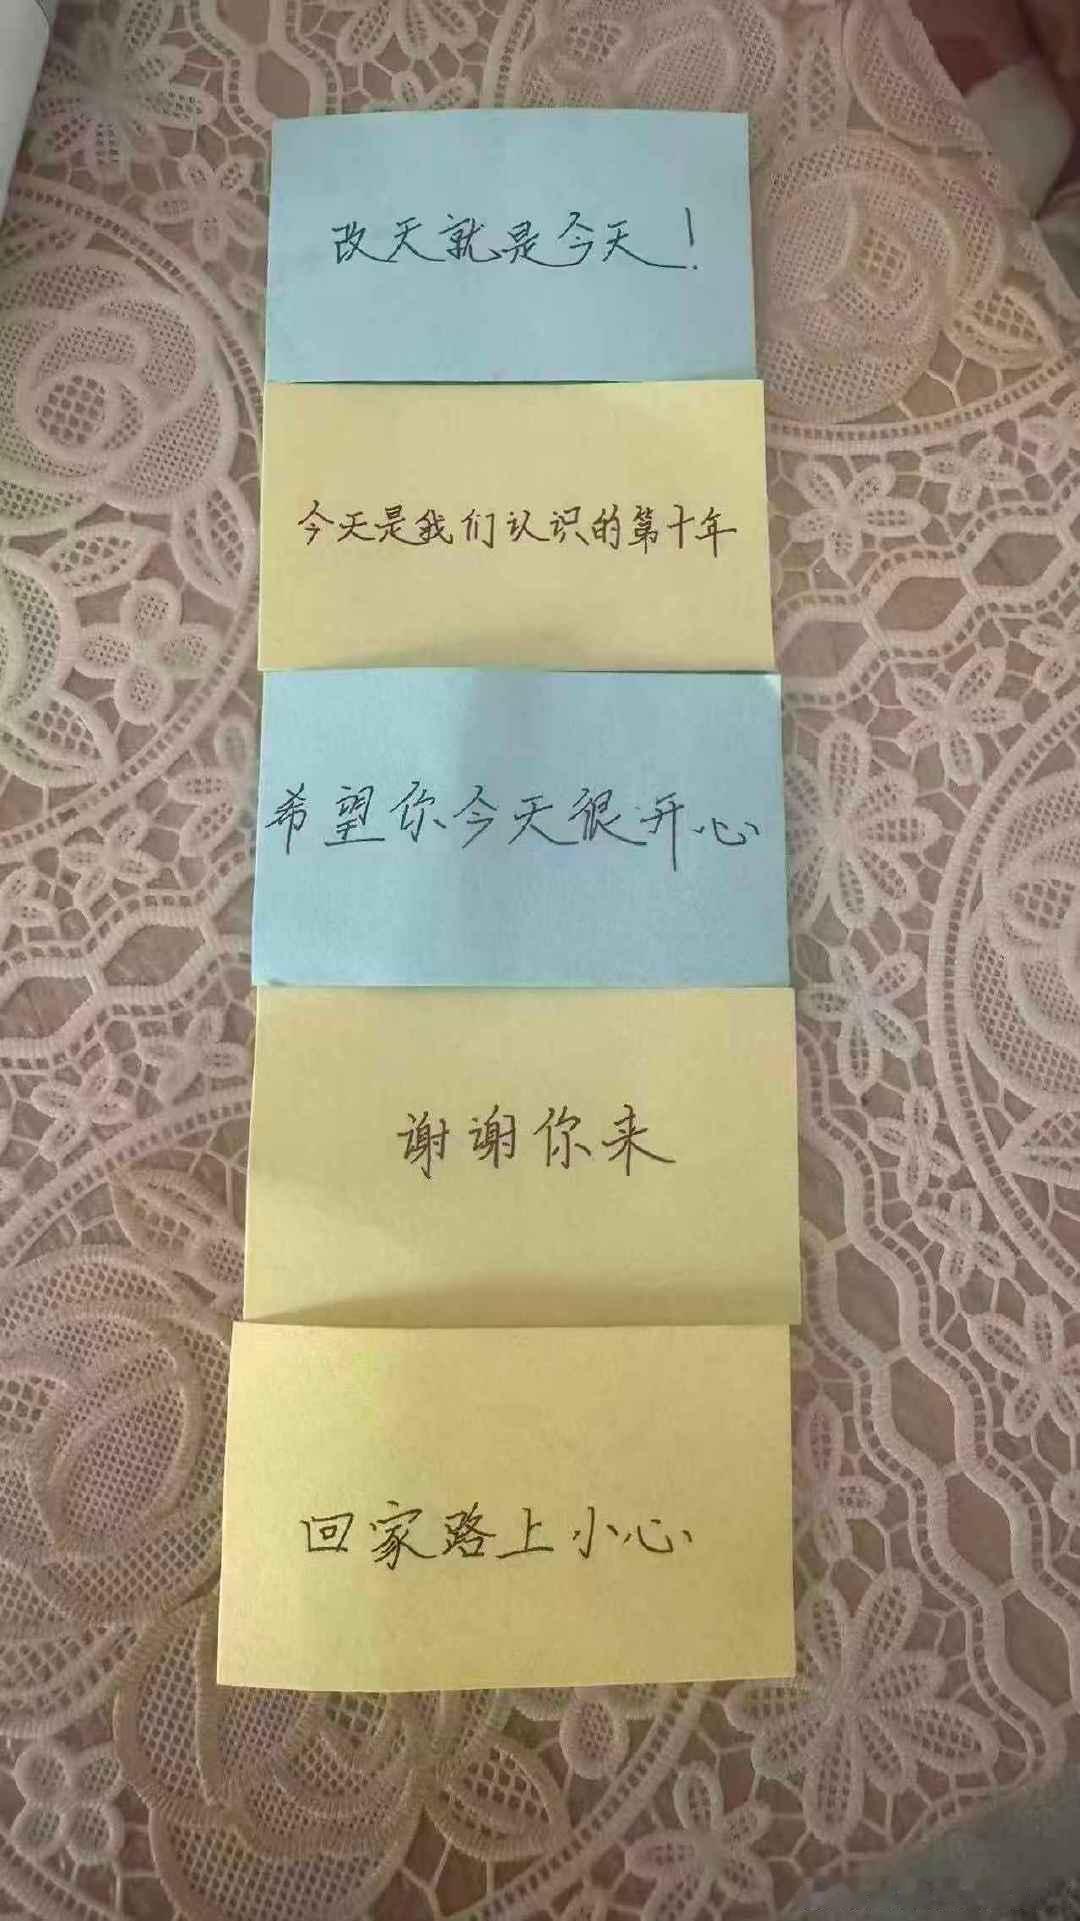 改天就是今天！
今天是我们认识的第十年
希望你今天很开心
谢谢你来
回家路上小心